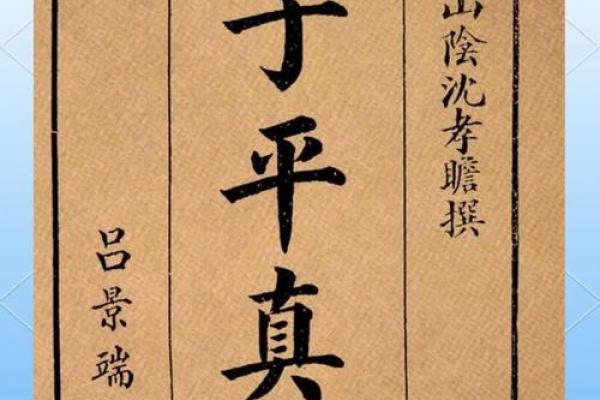 山陰沈孝瞻撰
子平真
吕景端